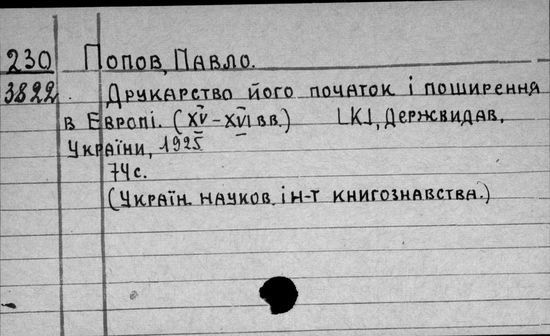 230 Попов, Павло.
3822 Друкарство його початок і поширення
в Европі. (XV-XVI вв.) [К], Держвидав,
України, 1925
74с.
(Україн. науков. ін-т книгознавства.)